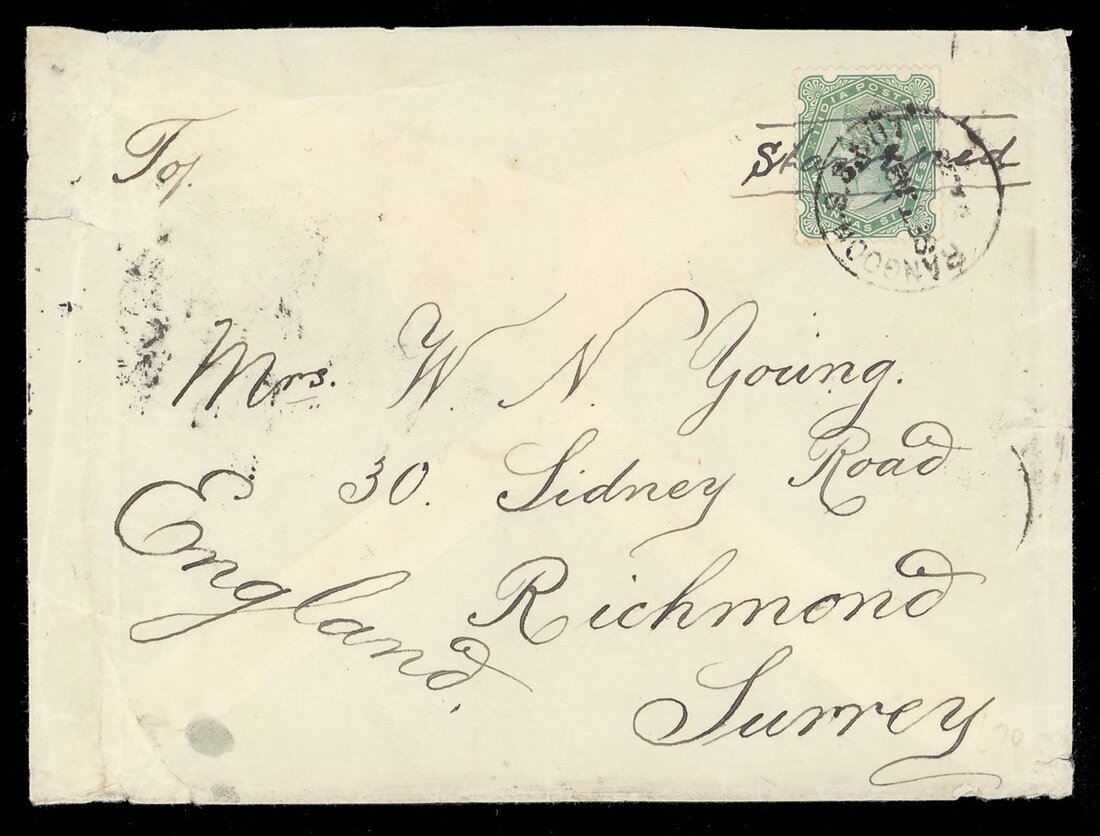 INDIA POSTAGE
Stamped
To,
RANGOON
Mrs. W. N. Young.
30. Sidney Road
Richmond
Surrey
England.